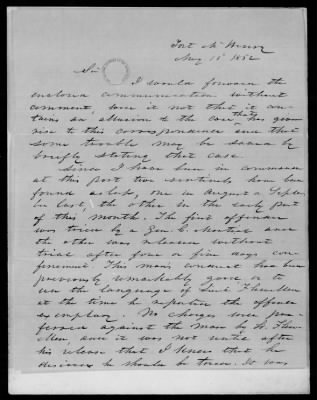 Fort McHenry
May 15th 1852
Sir
I would forward the
enclosed communication without
comment, were it not that it con-
tains an allusion to the case that has given
rise to this correspondence and that
some trouble may be saved by
briefly stating that case.
Since I have been in command
at this post two sentinels have been
found asleep, one in August or Septem-
ber last, the other in the early part
of this month. The first offender
was tried by a Gen. C. Martial and
the other was released without
trial after four or five days con-
finement. This man's conduct has been
previously remarkably good or to
use the language of Lieut
at the time he reported the offence
exemplary. No charges were pre-
ferred against the man by Lt.
and it was not until after
his release that I knew that he
desired he should be tried. It was